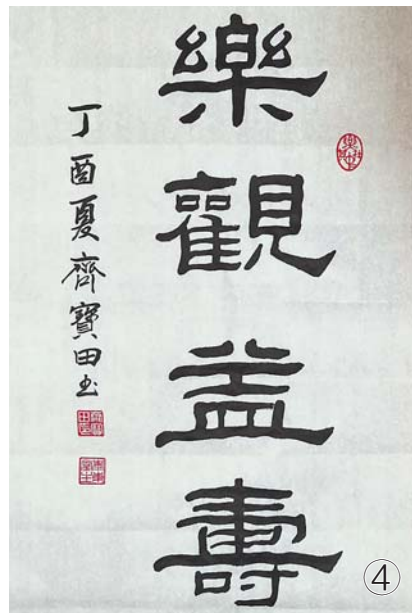 樂觀益壽
丁酉夏齊寶田书
④